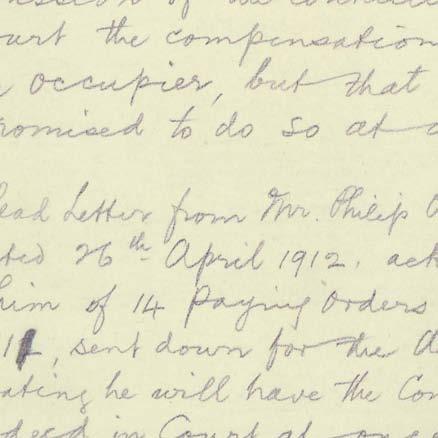 ourt the compensation
occupier, but that
romised to do so at a
ead Letter from Mr. Philip
ted 26th April 1912. ack
him of 14 Paying Orders
sent down for the
ating he will have the Con
in Court at once